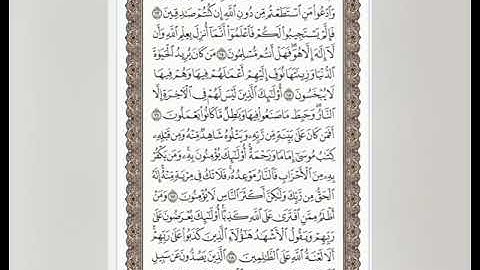 وَٱدۡعُواْ مَنِ ٱسۡتَطَعۡتُم مِّن دُونِ ٱللَّهِ إِن كُنتُمۡ صَٰدِقِينَ ١٣
فَإِلَّمۡ يَسۡتَجِيبُواْ لَكُمۡ فَٱعۡلَمُوٓاْ أَنَّمَآ أُنزِلَ بِعِلۡمِ ٱللَّهِ وَأَن
لَّآ إِلَٰهَ إِلَّا هُوَۖ فَهَلۡ أَنتُم مُّسۡلِمُونَ ١٤ مَن كَانَ يُرِيدُ ٱلۡحَيَوٰةَ
ٱلدُّنۡيَا وَزِينَتَهَا نُوَفِّ إِلَيۡهِمۡ أَعۡمَٰلَهُمۡ فِيهَا وَهُمۡ فِيهَا
لَا يُبۡخَسُونَ ١٥ أُوْلَٰٓئِكَ ٱلَّذِينَ لَيۡسَ لَهُمۡ فِي ٱلۡأٓخِرَةِ إِلَّا
ٱلنَّارُۖ وَحَبِطَ مَا صَنَعُواْ فِيهَا وَبَٰطِلٞ مَّا كَانُواْ يَعۡمَلُونَ ١٦
أَفَمَن كَانَ عَلَىٰ بَيِّنَةٖ مِّن رَّبِّهِۦ وَيَتۡلُوهُ شَاهِدٞ مِّنۡهُ وَمِن قَبۡلِهِۦ
كِتَٰبُ مُوسَىٰٓ إِمَامٗا وَرَحۡمَةًۚ أُوْلَٰٓئِكَ يُؤۡمِنُونَ بِهِۦۚ وَمَن يَكۡفُرۡ
بِهِۦ مِنَ ٱلۡأَحۡزَابِ فَٱلنَّارُ مَوۡعِدُهُۥۚ فَلَا تَكُ فِي مِرۡيَةٖ مِّنۡهُۚ إِنَّهُ
ٱلۡحَقُّ مِن رَّبِّكَ وَلَٰكِنَّ أَكۡثَرَ ٱلنَّاسِ لَا يُؤۡمِنُونَ ١٧ وَمَنۡ
أَظۡلَمُ مِمَّنِ ٱفۡتَرَىٰ عَلَى ٱللَّهِ كَذِبًاۚ أُوْلَٰٓئِكَ يُعۡرَضُونَ عَلَىٰ
رَبِّهِمۡ وَيَقُولُ ٱلۡأَشۡهَٰدُ هَٰٓؤُلَآءِ ٱلَّذِينَ كَذَبُواْ عَلَىٰ رَبِّهِمۡۚ
أَلَا لَعۡنَةُ ٱللَّهِ عَلَى ٱلظَّٰلِمِينَ ١٨ ٱلَّذِينَ يَصُدُّونَ عَن سَبِيلِ